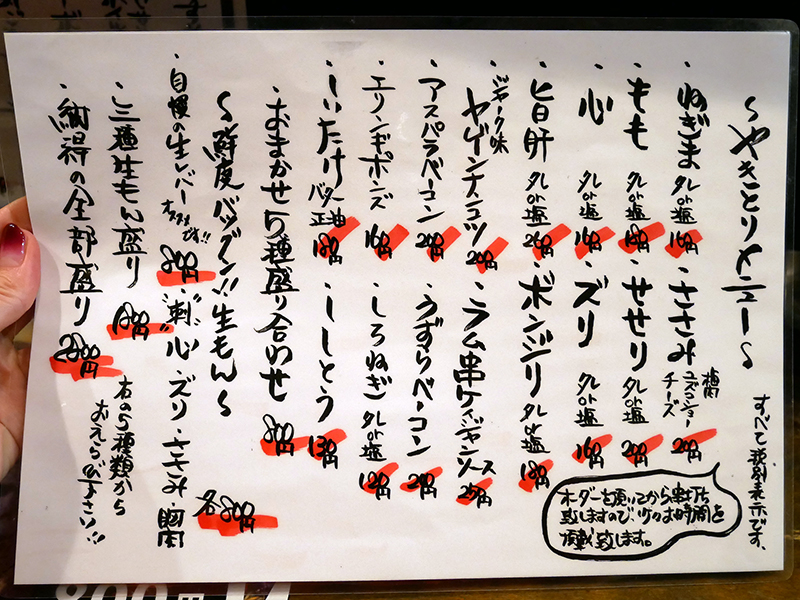 ～やきとりメニュー～
すべて税別表示です。
・ねぎま タレor塩 160円
・ささみ 梅肉 ユズコショー チーズ 200円
・もも タレor塩 180円
・せせり タレor塩 200円
・心 タレor塩 160円
・ズリ タレor塩 160円
・旨肝 タレor塩 260円
・ボンジリ タレor塩 180円
ジャーク味
・ヤゲンナンコツ 200円
・ラム串ケイジャンソース 250円
・アスパラベーコン 200円
・うずらベーコン 200円
・エリンギポンズ 160円
・しろねぎ タレor塩 120円
・しいたけ バター正油 180円
・ししとう 130円
・おまかせ5種盛り合わせ 800円
～鮮度バツグン!!生もん～
・自慢の生レバー オススメです!! 800円
・"刺" 心・ズリ・ささみ・胸肉 各800円
・三種生もん盛り 1800円
右の5種類からおえらび下さい!!
・納得の全部盛り 2800円
オーダーを頂いてから串打ち
致しますので、少々お時間を
頂戴致します。